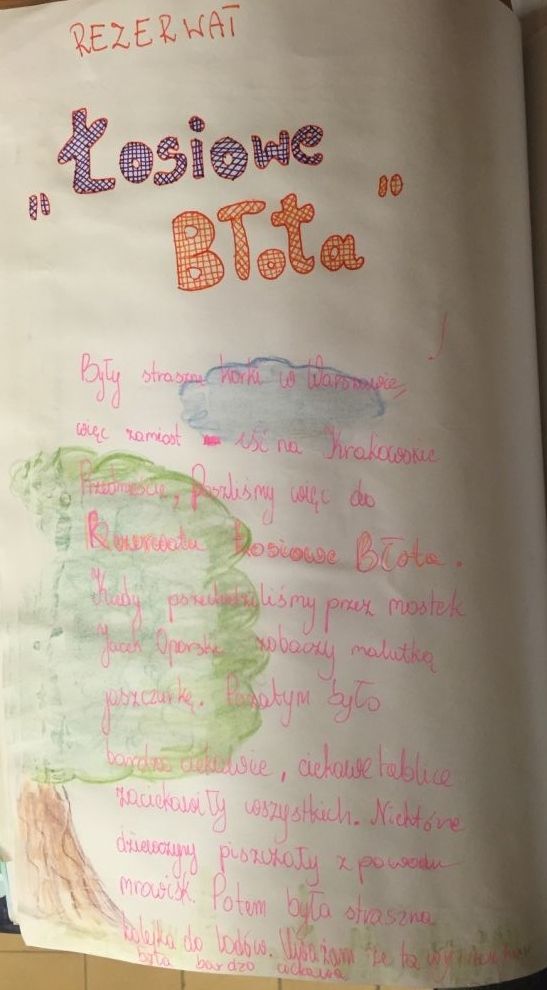 REZERWAT
„Łosiowe
Błota"
Były straszne korki w Warszawie,
więc zamiast iść na Krakowskie
Przedmieście, poszliśmy więc do
Rezerwatu Łosiowe Błota.
Kiedy przechodziliśmy przez mostek
Jacek Oporski zobaczy malutką
jaszczurkę. Pozatym było
bardzo ciekawie, ciekawe tablice
zaciekawiły wszystkich. Niektóre
dziewczyny piszczały z powodu
mrowisk. Potem była straszna
kolejka do lodów. Uważam że ta wycieczka
była bardzo ciekawa